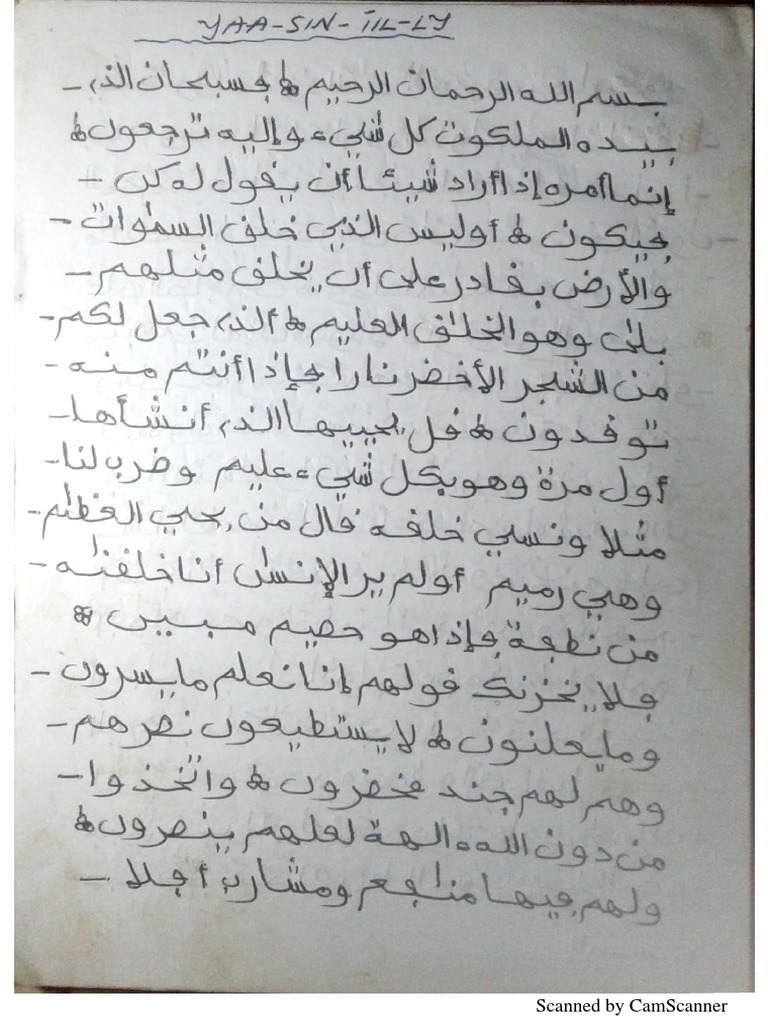 YAA-SIN-IIL-LY
بسم الله الرحمان الرحيم ه فسبحان الذي -
بيده الملكوت كل شيء وإليه ترجعون ه
إنما أمره إذا أراد شيئا أن يقول له كن -
فيكون ه أوليس الذي خلق السموات -
والأرض بقادر على أن يخلق مثلهم -
بلى وهو الخلق العليم ه الذي جعل لكم -
من الشجر الأخضر نارا فإذا أنتم منه -
توقدون ه قل يحييها الذي أنشأها -
أول مرة وهو بكل شيء عليم وضرب لنا -
مثلا ونسي خلقه قال من يحي العظم -
وهي رميم أولم ير الإنسن أنا خلقنه -
من نطفة فإذا هو خصيم مبين ه
فلا يحزنك قولهم إنا نعلم ما يسرون -
وما يعلنون ه لا يستطيعون نصرهم -
وهم لهم جند محضرون ه واتخذوا -
من دون الله ءالهة لعلهم ينصرون ه
ولهم فيها منافع ومشارب أفلا -
Scanned by CamScanner